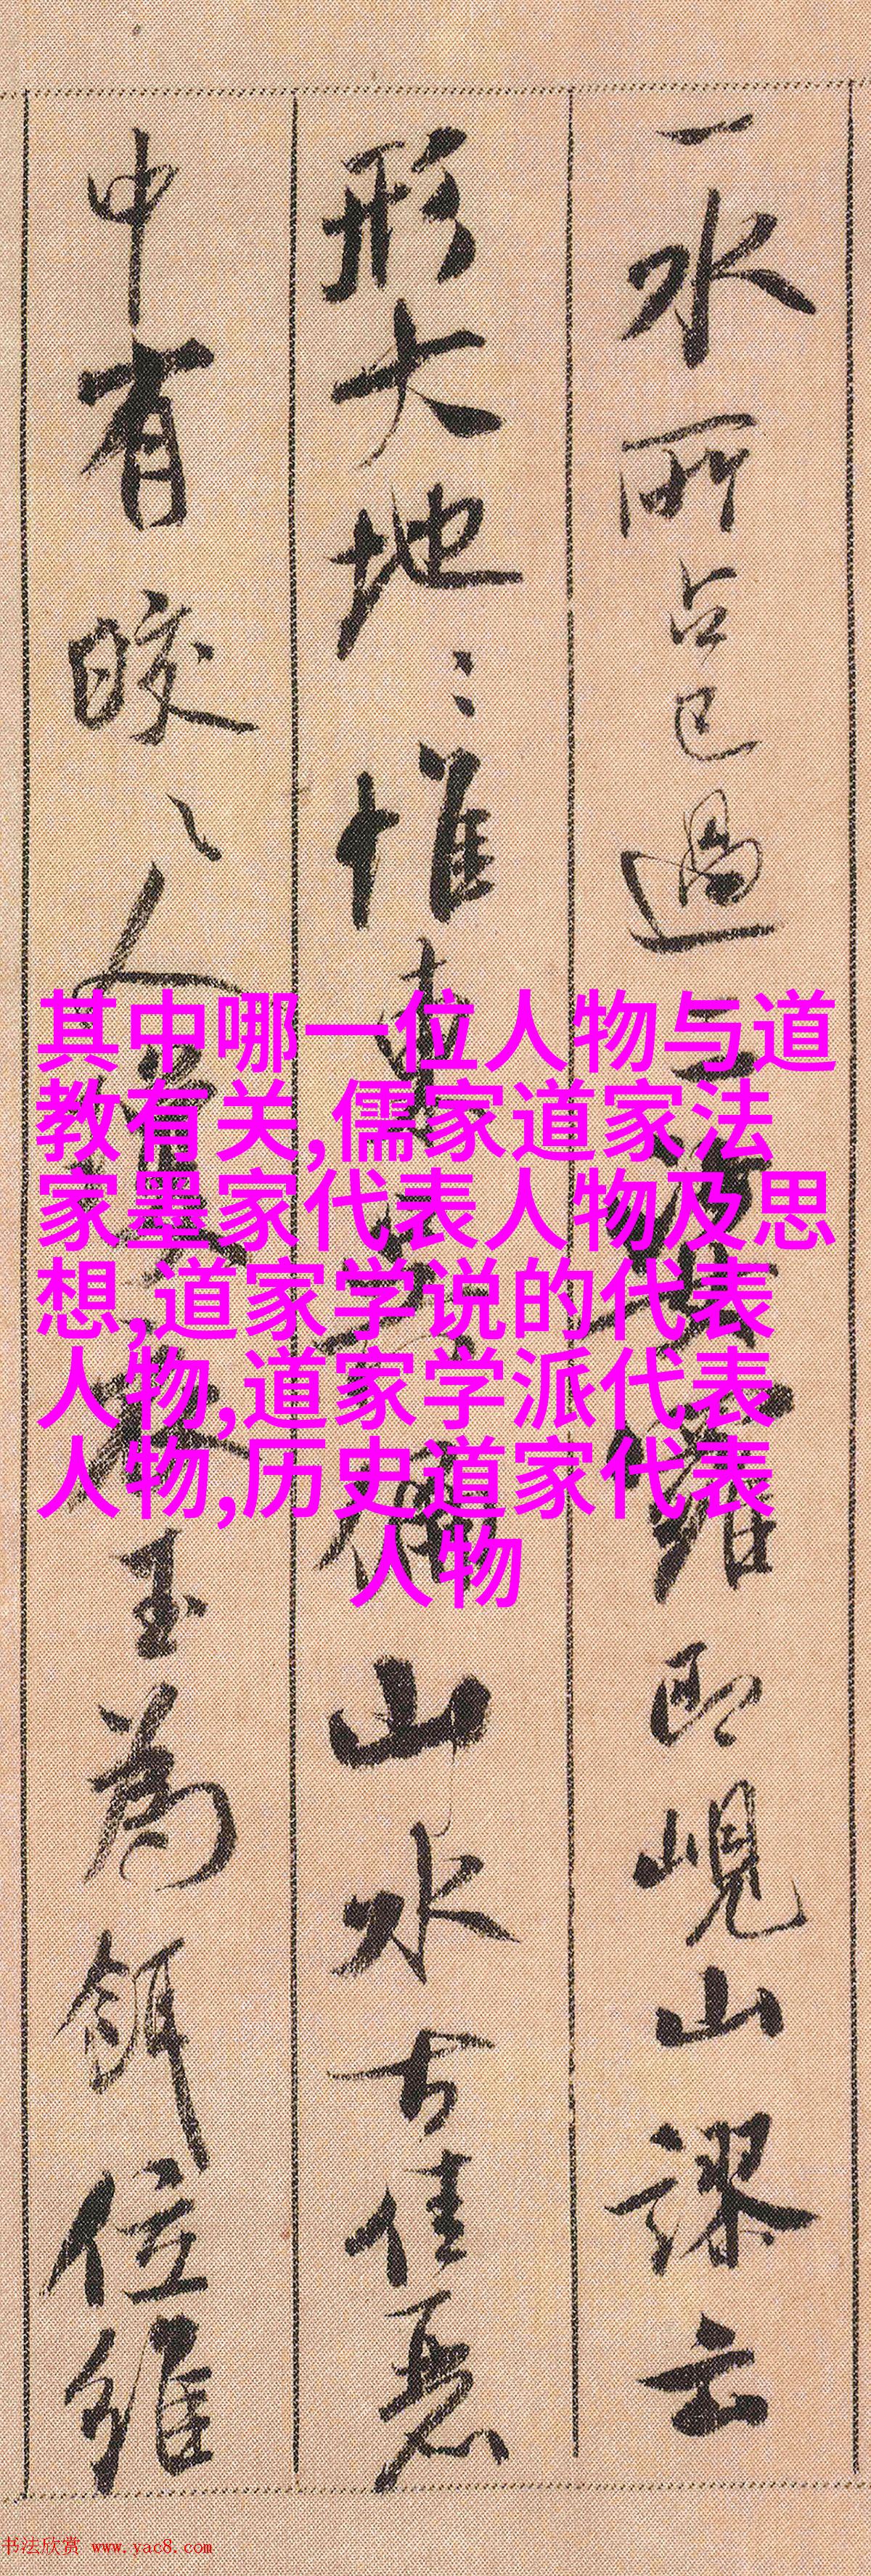 一水所占已過
即峴山謬云
形大地〻惟東
山水古佳惡
中有皎〻人
玉為餌位維
其中哪一位人物与道
教有关,儒家道家法
家墨家代表人物及思
想,道家学说的代表
人物,道家学派代表
人物,历史道家代表
人物
书法欣赏 www.yac8.com